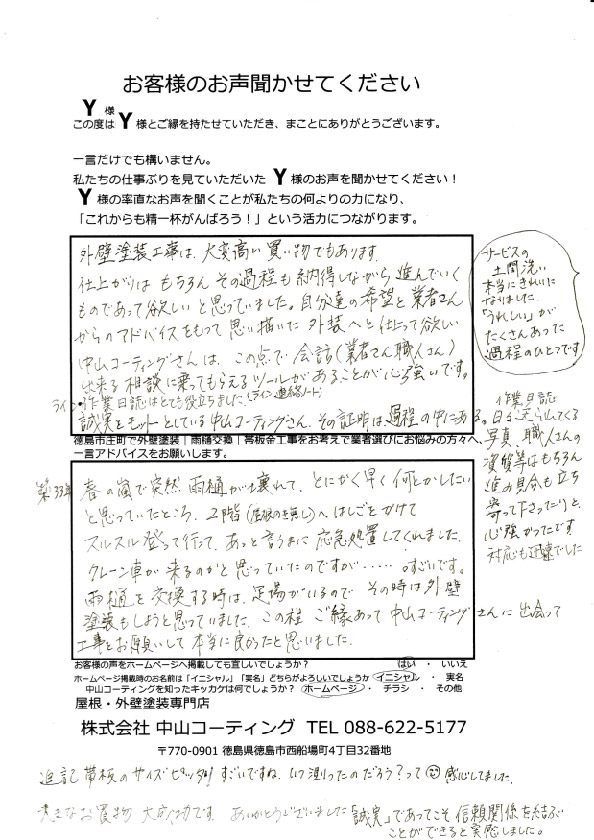 お客様のお声聞かせてください
Y 様
この度は Y 様とご縁を持たせていただき、まことにありがとうございます。
一言だけでも構いません。
私たちの仕事ぶりを見ていただいた Y 様のお声を聞かせてください！
Y 様の率直なお声を聞くことが私たちの何よりの力になり、
「これからも精一杯がんばろう！」という活力につながります。
外壁塗装工事は、大変高い買い物でもあります。
仕上がりは もちろん その過程も納得しながら 進んでいく
ものであって欲しい と思っていました。自分達の希望と業者さん
からのアドバイスをもって 思い描いた 外装へと仕上って欲しい
中山コーティングさんは、この点で 会話（業者さん職人さん）
出来る 相談に乗ってもらえるツールがあることが心強いです。
ライン・作業日誌はとても役立ちました（ライン、連絡ノート）
誠実をモットーとしている中山コーティングさん、その証明は過程の中にある。
サービスの
土間洗い
本当にきれいに
なりました
「うれしい」が
たくさんあった
過程のひとつです
作業日誌
日々こえらんでくる
写真、職人さんの
資質等はもちろん
進力具合も立ち
寄って下さったりと、
心強かったです
対応も迅速でした
徳島市庄町で外壁塗装｜雨樋交換｜帯板金工事をお考えで業者選びにお悩みの方々へ、
一言アドバイスをお願いします。
築33年 春の嵐で突然 雨樋が壊れて、とにかく早く何とかしたい
と思っていたところ、2階（屋根の玉無し）へ はしごをかけて
スルスル登って行って、あっと言うまに 応急処置してくれました。
クレーン車が 来るのかと思っていたのですが……。すごいです。
雨樋を交換する時は、足場がいるので その時は外壁
塗装もしようと思っていました。この程 ご縁あって 中山コーティングさんに出会って
工事をお願いして 本当に良かったと思いました。
お客様の声をホームページへ掲載しても宜しいでしょうか？ はい ・ いいえ
ホームページ掲載時のお名前は「イニシャル」「実名」どちらがよろしいでしょうか イニシャル ・ 実名
中山コーティングを知ったキッカケは何でしょうか？ ホームページ ・ チラシ ・ その他
屋根・外壁塗装専門店
株式会社 中山コーティング TEL 088-622-5177
〒770-0901 徳島県徳島市西船場町4丁目32番地
追記 帯板のサイズピッタリ すごいですね、いつ測ったのだろう？って 感心してました。
大きなお買物 大成功です。ありがとうございました「誠実」であってこそ 信頼関係を結ぶ
ことができると実感しました。